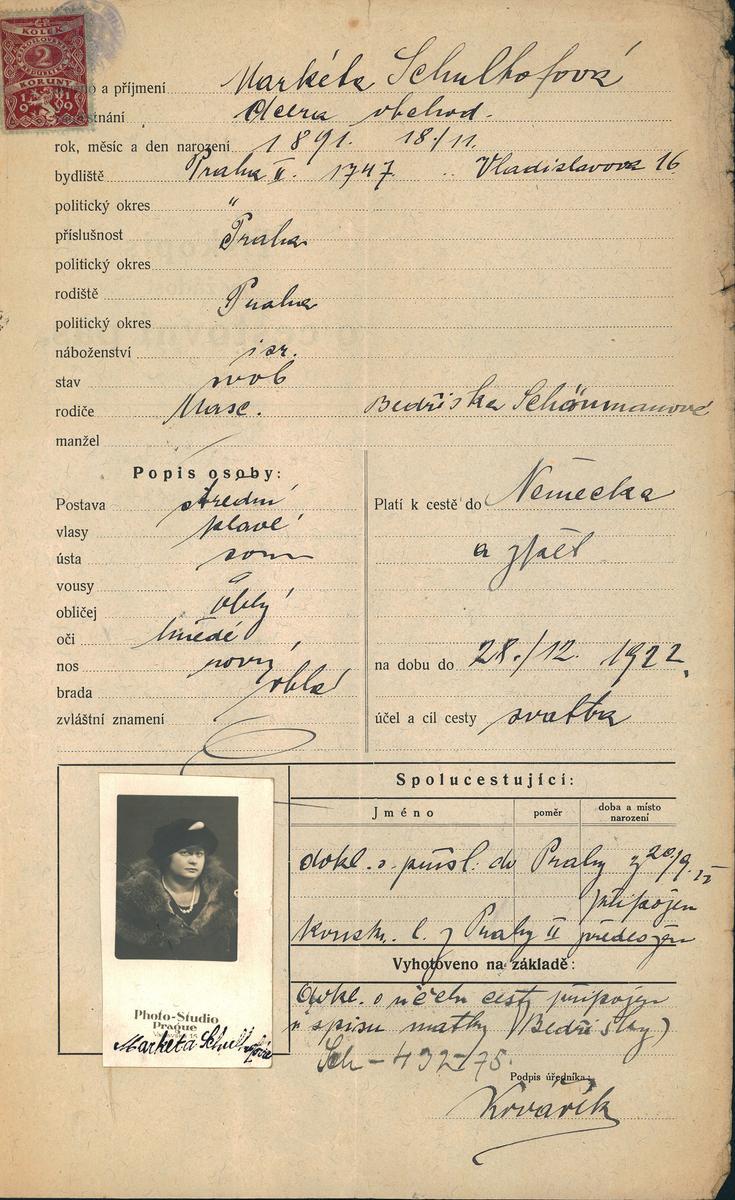 ČR
KOLEK
2
KORUNY
19 19
o a příjmení Markéta Schulhofová
stnání dcera obchod.
rok, měsíc a den narození 1891. 18/11.
bydliště Praha II. 1747 Vladislavova 16
politický okres "
příslušnost Praha
politický okres
rodiště Praha
politický okres
náboženství isr.
stav svob
rodiče Marc. Bedřiška Schönmanové
manžel
Popis osoby:
Postava střední
vlasy plavé
ústa soum
vousy
obličej oblý
oči hnědé
nos rovný
brada oblá
zvláštní znamení
Platí k cestě do Německa
a zpět
na dobu do 28./12. 1922.
účel a cíl cesty svatba
Spolucestující:
Jméno poměr doba a místo narození
dokl. o přísl. do Prahy z 20/9.
připojen
konskr. l. z Prahy II předložen
Vyhotoveno na základě:
dokl. o účelu cesty připojen
spisu matky (Bedřišky)
Sch-432-75.
Podpis úředníka:
Kovářík
Photo-Studio
Prague
Markéta Schulhofová